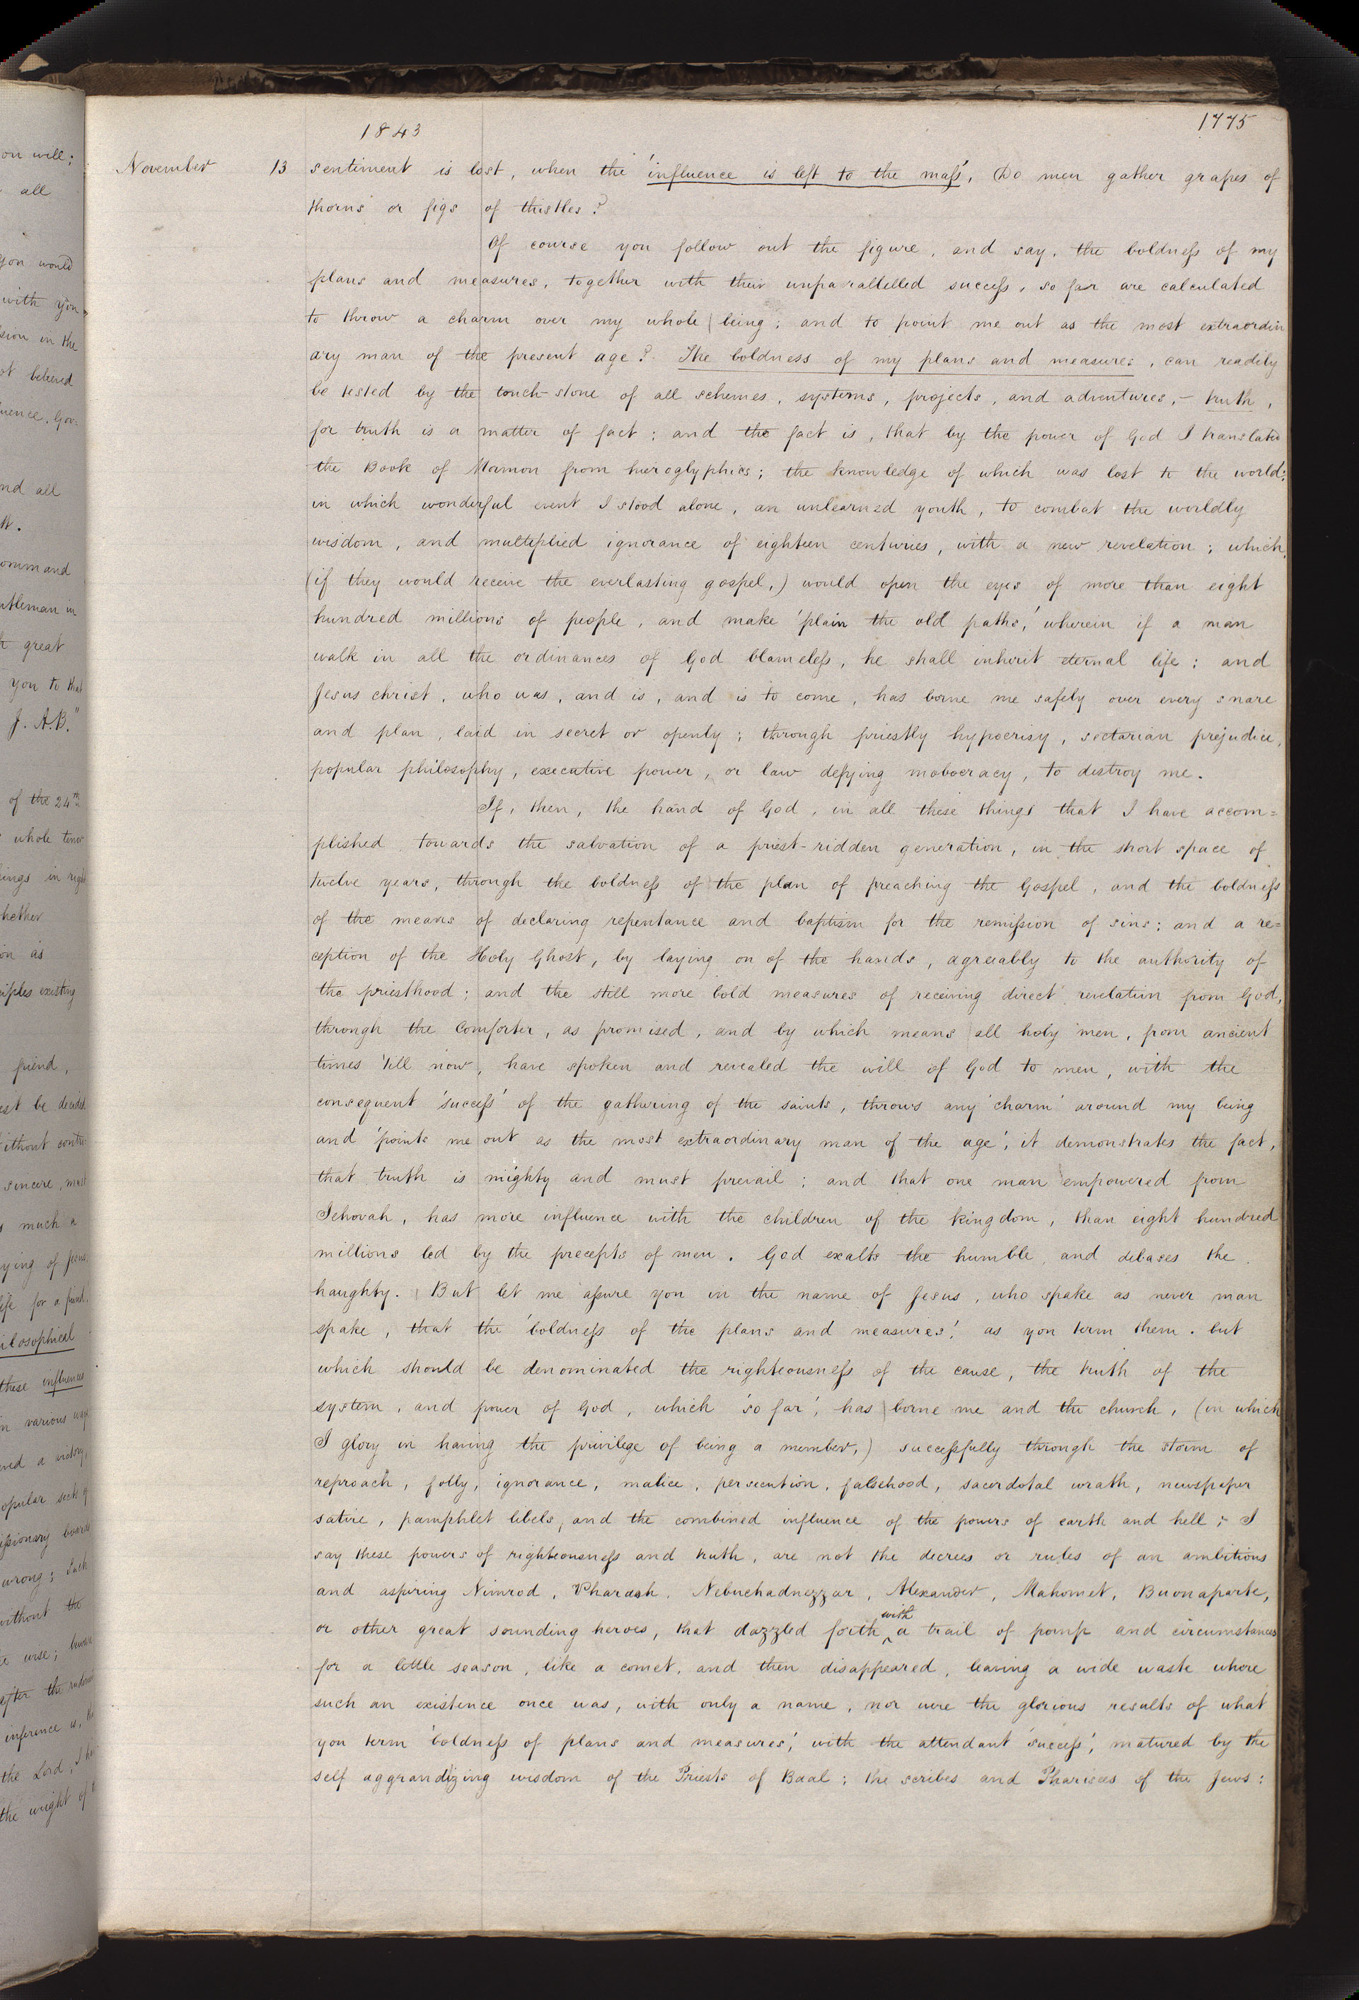 on will;
all
you would
with you
sion in the
ot behead
luence, Gov.
nd all
st.
ommand
ntleman in
great
you to that
J. A.B."
of the 24th
whole tenor
ings in right
hether
on as
ciples existing
friend,
ust be decided
ithout contra
sincere, must
much a
ying of Jesus
life for a friend,
ilosophical
these influences
in various ways
ved a victory,
opular sect of
issionary board
wrong; such
without the
wise;
after the
inference is, the
the Lord,
the weight of
1843
1775
November 13 sentiment is lost, when the 'influence is left to the mass', Do men gather grapes of
thorns or figs of thistles?
Of course you follow out the figure, and say, the boldness of my
plans and measures, together with their unparallelled success, so far are calculated
to throw a charm over my whole being; and to point me out as the most extraordin
ary man of the present age? The boldness of my plans and measures, can readily
be tested by the touch-stone of all schemes, systems, projects, and adventures,- truth,
for truth is a matter of fact; and the fact is, that by the power of God I translated
the Book of Mormon from hieroglyphics; the knowledge of which was lost to the world:
in which wonderful event I stood alone, an unlearned youth, to combat the worldly
wisdom, and multiplied ignorance of eighteen centuries, with a new revelation; which,
(if they would receive the everlasting gospel,) would open the eyes of more than eight
hundred millions of people, and make 'plain the old paths,' wherein if a man
walk in all the ordinances of God blameless, he shall inherit eternal life; and
Jesus christ, who was, and is, and is to come, has borne me safely over every snare
and plan, laid in secret or openly; through priestly hypocrisy, sectarian prejudice,
popular philosophy, executive power, or law defying mobocracy, to destroy me.
If, then, the hand of God, in all these things that I have accom=
plished towards the salvation of a priest-ridden generation, in the short space of
twelve years, through the boldness of the plan of preaching the Gospel, and the boldness
of the means of declaring repentance and baptism for the remission of sins; and a re=
ception of the Holy Ghost, by laying on of the hands, agreeably to the authority of
the priesthood; and the still more bold measures of receiving direct revelation from God,
through the Comforter, as promised, and by which means all holy men, from ancient
times 'till now, have spoken and revealed the will of God to men, with the
consequent 'success' of the gathering of the saints, throws any 'charm' around my being
and 'points me out as the most extraordinary man of the age', it demonstrates the fact,
that truth is mighty and must prevail; and that one man empowered from
Jehovah, has more influence with the children of the kingdom, than eight hundred
millions led by the precepts of men. God exalts the humble, and debases the
haughty. But let me assure you in the name of Jesus, who spake as never man
spake, that the 'boldness of the plans and measures', as you term them. but
which should be denominated the righteousness of the cause, the truth of the
system, and power of God, which 'so far', has borne me and the church, (in which
I glory in having the privilege of being a member,) successfully through the storm of
reproach, folly, ignorance, malice, persecution, falsehood, sacerdotal wrath, newspaper
satire, pamphlet libels, and the combined influence of the powers of earth and hell; I
say these powers of righteousness and truth, are not the decrees or rules of an ambitious
and aspiring Nimrod, Pharaoh, Nebuchadnezzar, Alexander, Mahomet, Buonaparte,
or other great sounding heroes, that dazzled forth with a trail of pomp and circumstances
for a little season, like a comet, and then disappeared, leaving a wide waste where
such an existence once was, with only a name, nor were the glorious results of what
you term 'boldness of plans and measures', with the attendant 'success', matured by the
self aggrandizing wisdom of the Priests of Baal; the scribes and Pharisees of the Jews;